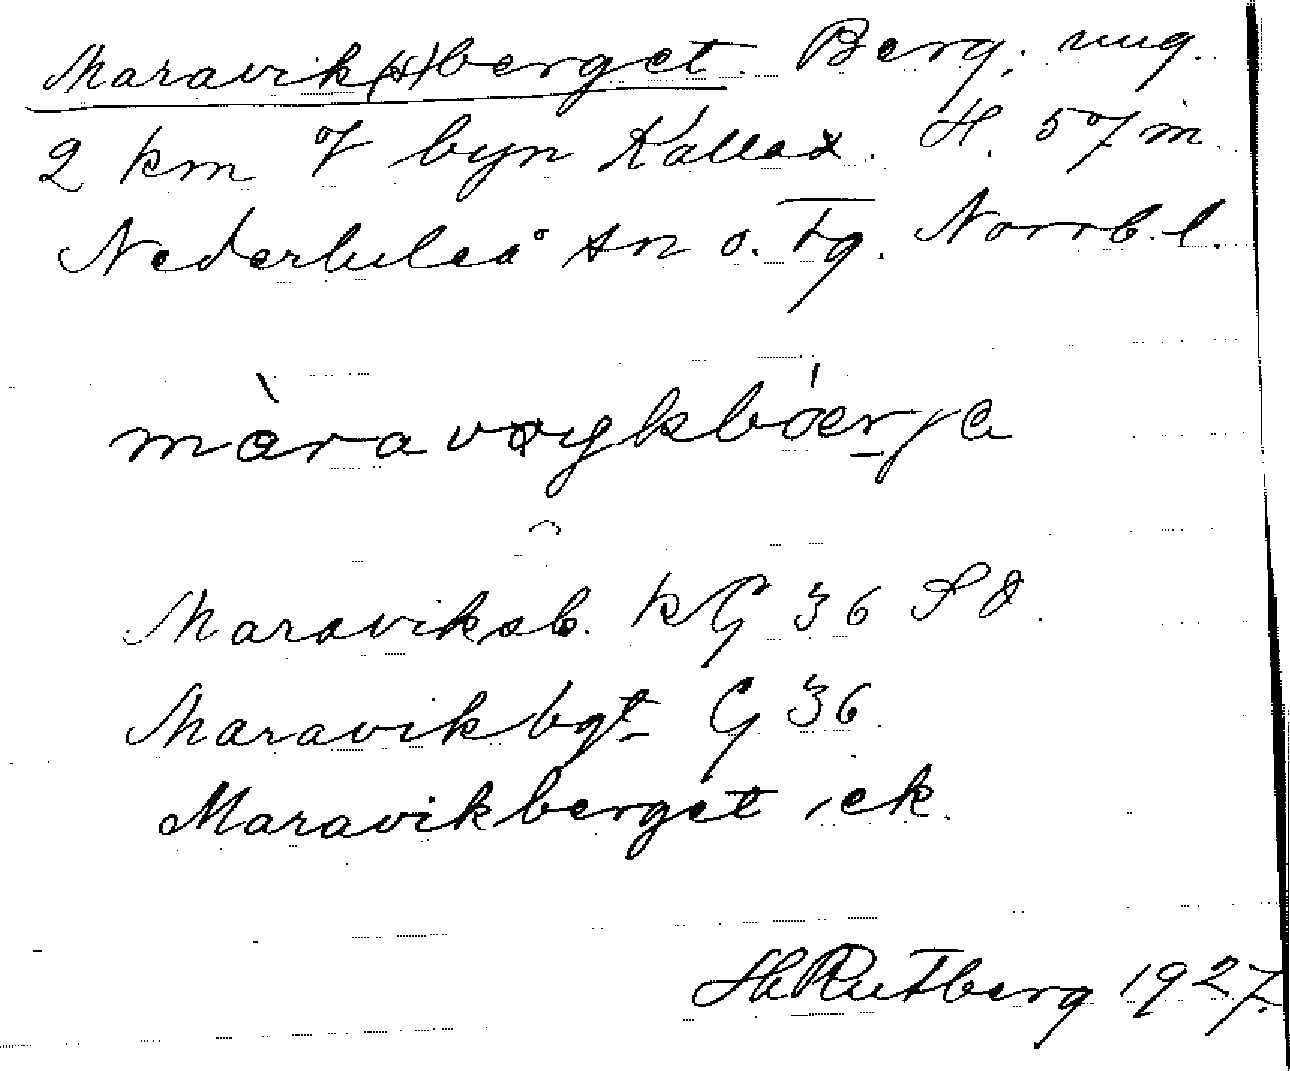 Maravik(s)berget. Berg, ung.
2 km V byn Kallax. H. 57 m.
Nederluleå sn o. Tg. Norrb. l.
màravikbærje
Maraviksb. kG 36 SO.
Maravikbgt G 36.
Maravikberget, ek.
Hh Rutberg 1927.